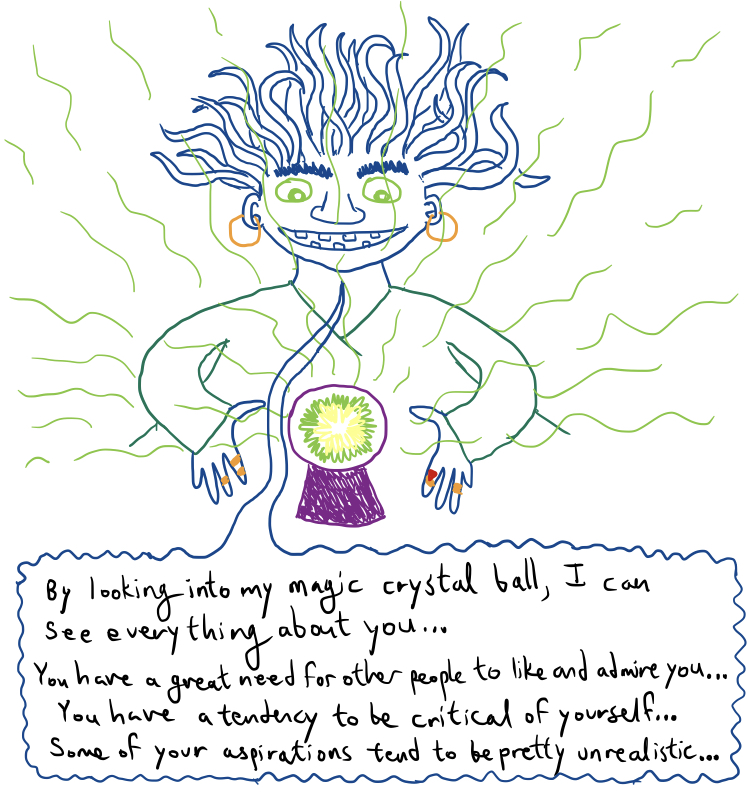 By looking into my magic crystal ball, I can
see everything about you...
You have a great need for other people to like and admire you...
You have a tendency to be critical of yourself...
Some of your aspirations tend to be pretty unrealistic...